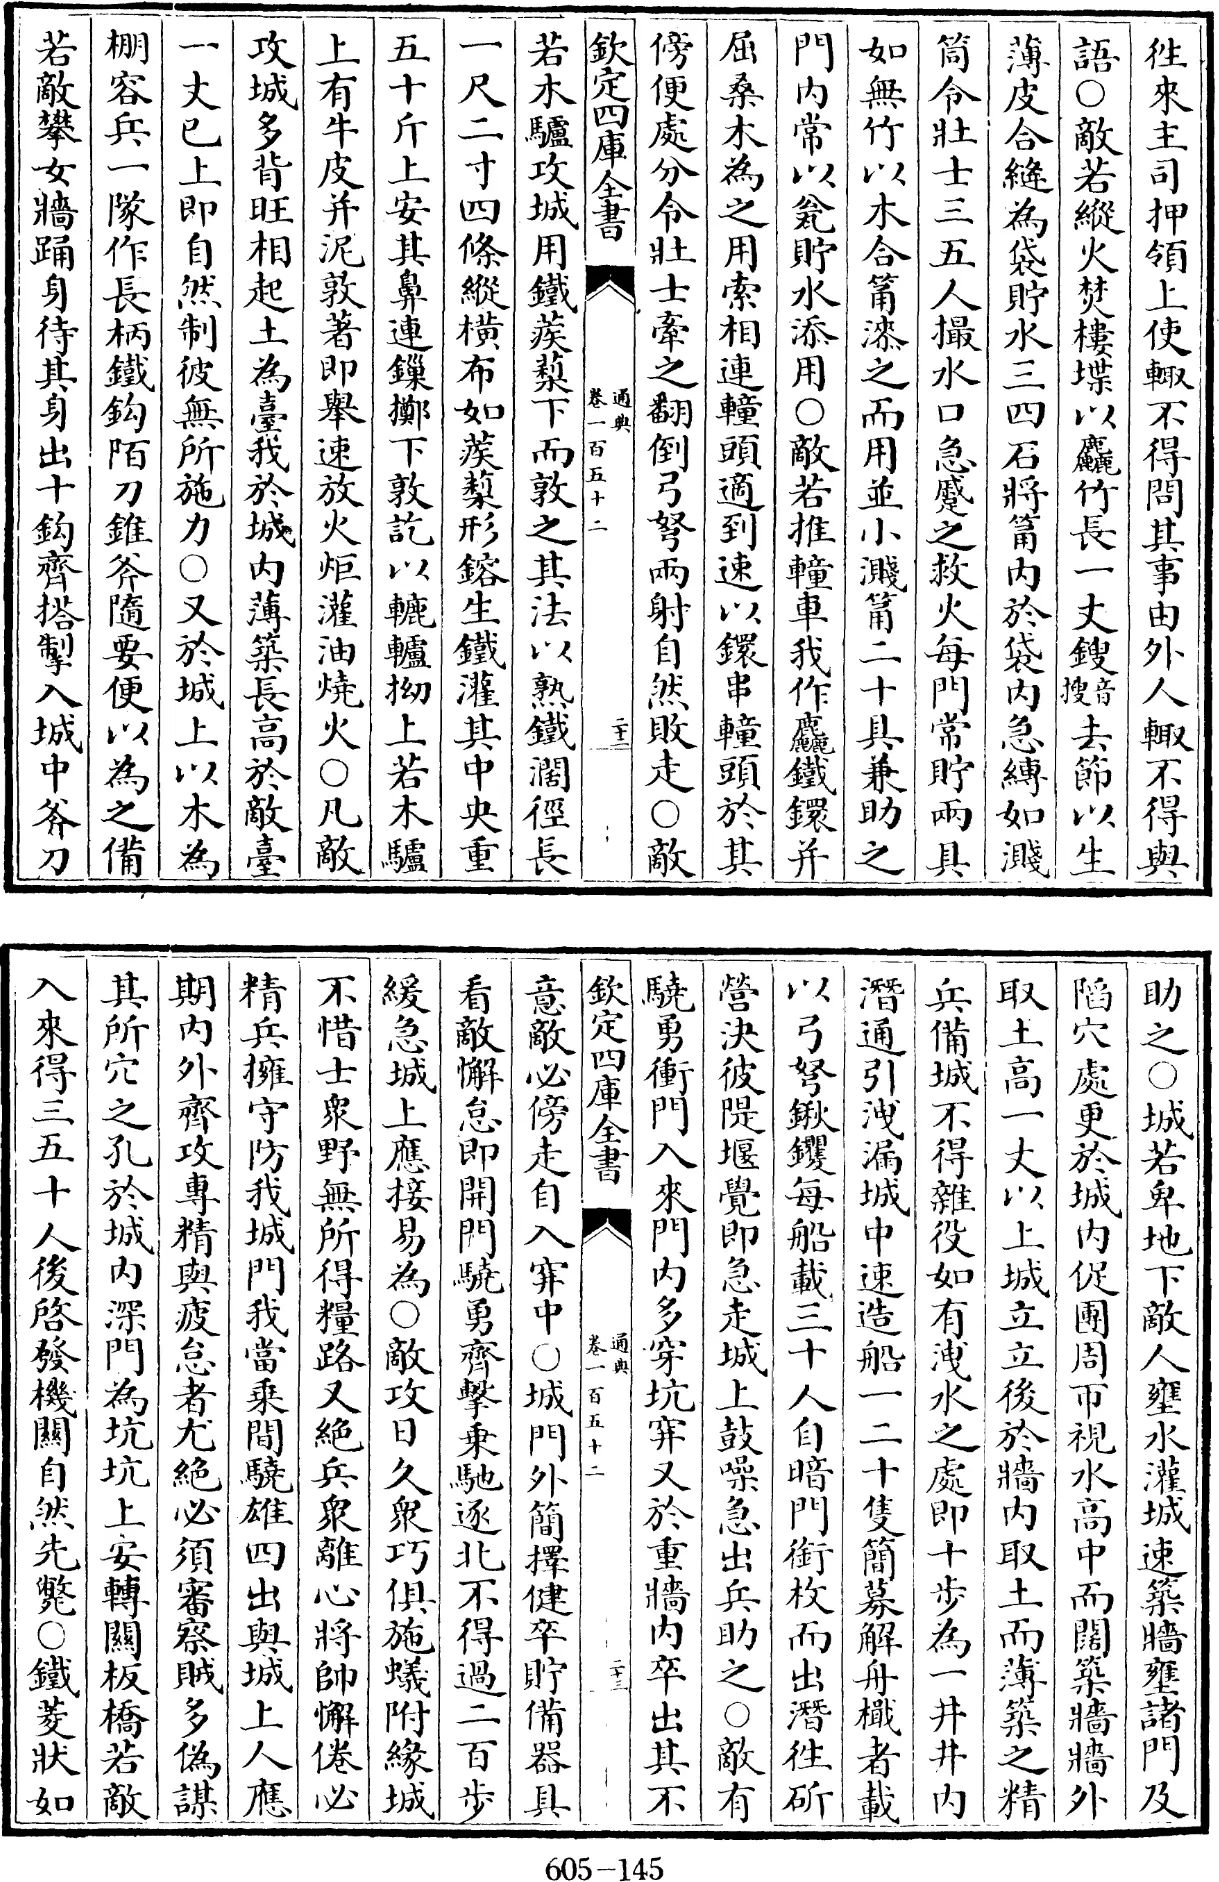 徃來主司押領上使輙不得問其事由外人輙不得與
語○敵若縱火焚樓堞以麤竹長一丈鎪音搜去節以生
薄皮合縫為袋貯水三四石將筩内於袋内急縛如濺
筒令壯士三五人撮水口急蹙之救火每門常貯兩具
如無竹以木合筩漆之而用並小濺筩二十具兼助之
門内常以瓮貯水添用○敵若推轒車我作麤鐵鐶并
屈桑木為之用索相連轒頭適到速以鐶串轒頭於其
傍便處分令壯士牽之翻倒弓弩兩射自然敗走○敵
欽定四庫全書
通典
卷一百五十二
二十二
若木驢攻城用鐵蒺䔧下而敦之其法以熟鐵濶徑長
一尺二寸四條縱橫布如蒺䔧形鎔生鐵灌其中央重
五十斤上安其鼻連鏁擲下敦訖以轆轤拗上若木驢
上有牛皮并泥敦著即舉速放火炬灌油燒火○凡敵
攻城多背旺相起土為臺我於城内薄築長高於敵臺
一丈已上即自然制彼無所施力○又於城上以木為
棚容兵一隊作長柄鐵鈎陌刀錐斧隨要便以為之備
若敵攀女牆踊身待其身出十鈎齊搭掣入城中斧刀
助之○城若卑地下敵人壅水灌城速築牆壅諸門及
陷穴處更於城内促團周帀視水高中而闊築牆牆外
取土高一丈以上城立立後於牆内取土而薄築之精
兵備城不得雜役如有洩水之處即十步為一井井内
潛通引洩漏城中速造船一二十隻簡募解舟檝者載
以弓弩鍬钁每船載三十人自暗門銜枚而出潛徃斫
營決彼隄堰覺即急走城上鼓噪急出兵助之○敵有
驍勇衝門入來門内多穿坑穽又於重牆内卒出其不
欽定四庫全書
通典
卷一百五十二
二十三
意敵必傍走自入穽中○城門外簡擇健卒貯備器具
看敵懈怠即開門驍勇齊擊乗馳逐北不得過二百步
緩急城上應接易為○敵攻日久衆巧俱施蟻附緣城
不惜士衆野無所得糧路又絶兵衆離心將帥懈倦必
精兵擁守防我城門我當乗間驍雄四出與城上人應
期内外齊攻專精與疲怠者尤絶必須審察賊多偽謀
其所穴之孔於城内深門為坑坑上安轉關板橋若敵
入來得三五十人後啓發機關自然先斃○鐵菱狀如
605-145